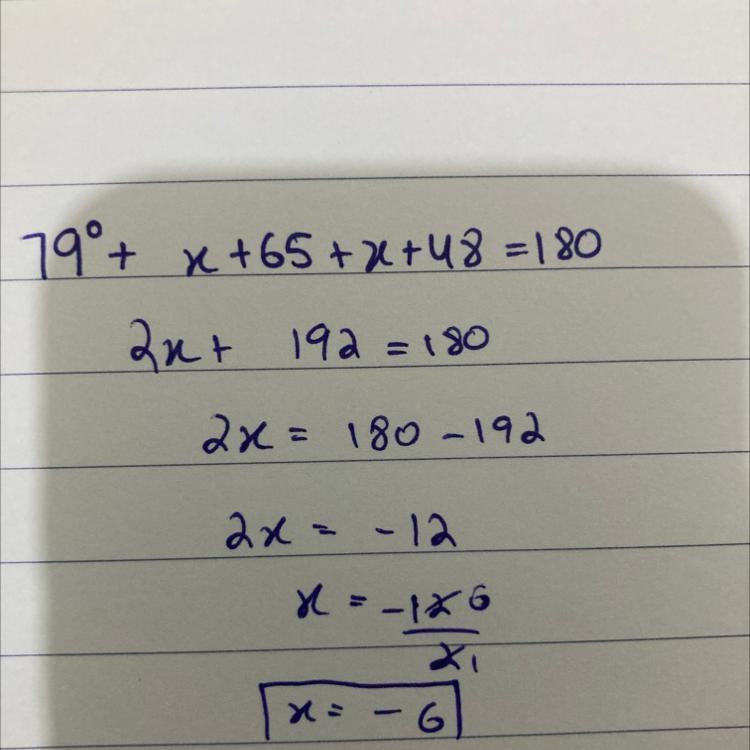 79° + x + 65 + x + 48 = 180
2x + 192 = 180
2x = 180 - 192
2x = -12
x = -12 6
2 1
x = - 6